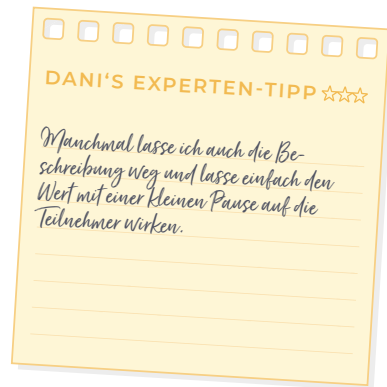 DANI'S EXPERTEN-TIPP
Manchmal lasse ich auch die Be-
schreibung weg und lasse einfach den
Wert mit einer kleinen Pause auf die
Teilnehmer wirken.